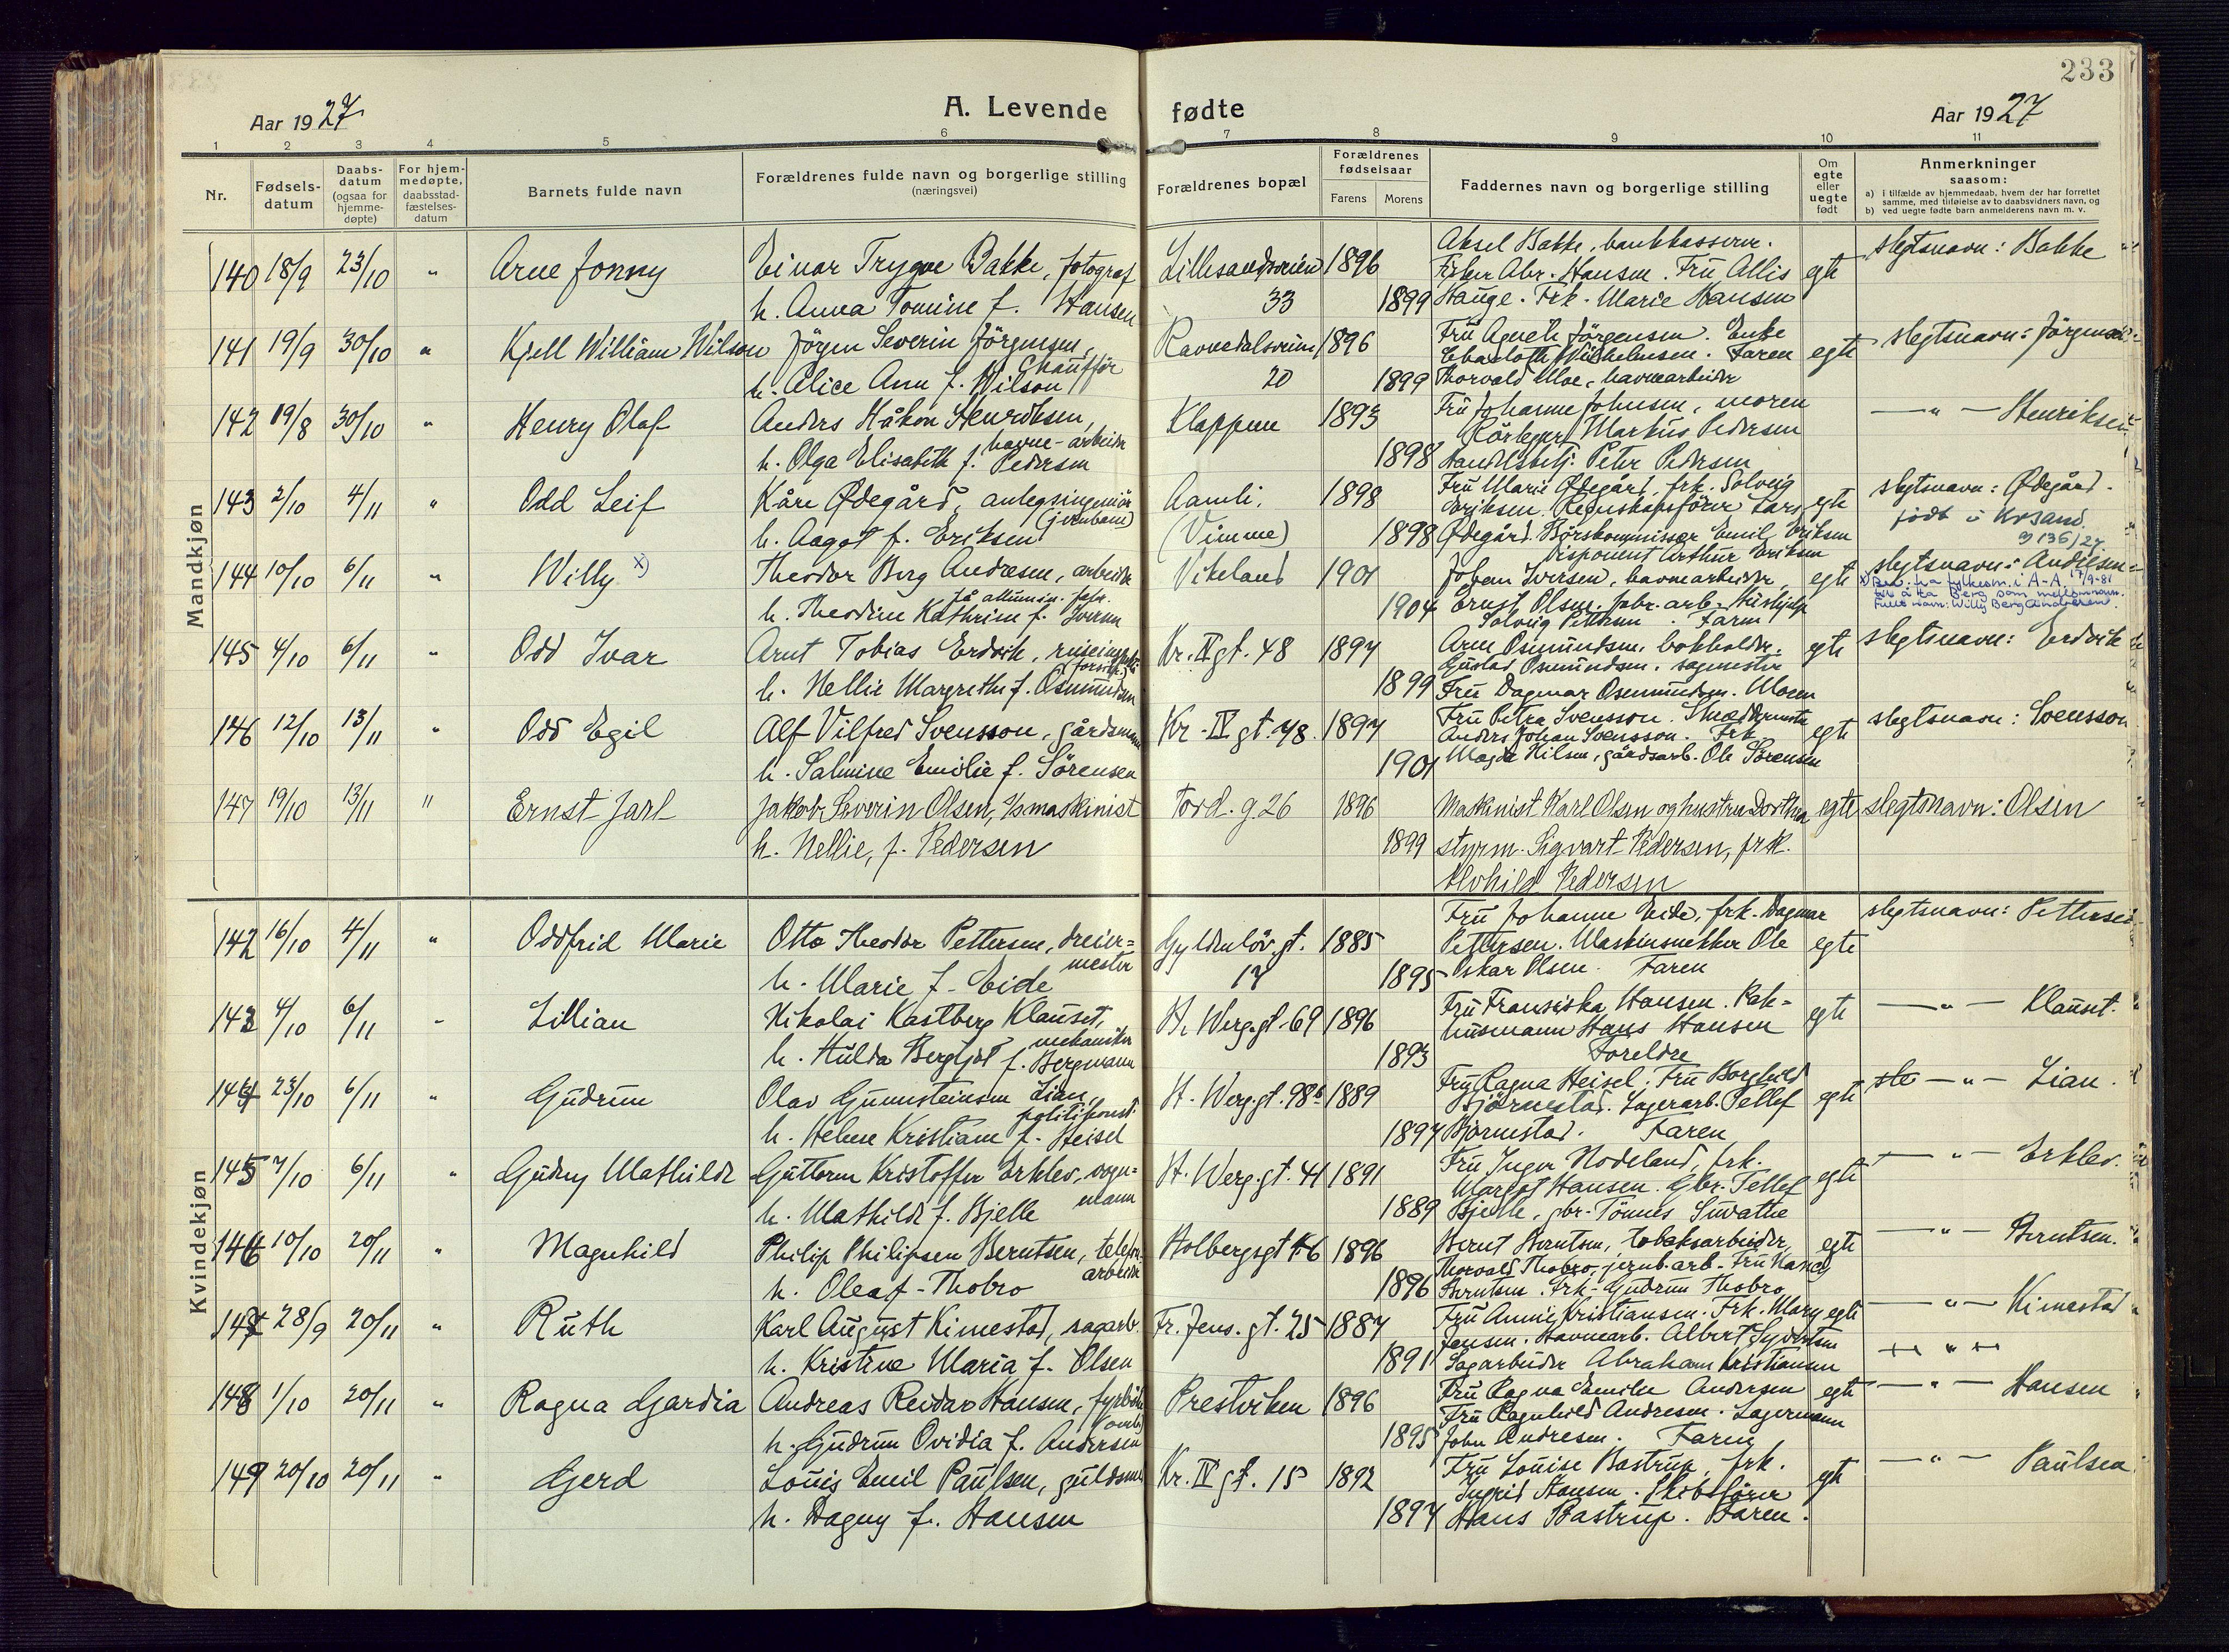 233
Aar 1927 A. Levende fødte Aar 1927
1 2 3 4 5 6 7 8 9 10 11
Nr. Fødsels-datum Daabs-datum (ogsaa for hjemme-døpte) For hjem-medøpte, daabsstad-fæstelses-datum Barnets fulde navn Forældrenes fulde navn og borgerlige stilling (næringsvei) Forældrenes bopæl Forældrenes fødselsaar Farens Morens Faddernes navn og borgerlige stilling Om egte eller uegte født Anmerkninger saasom:
a) i tilfælde av hjemmedaab, hvem der har forrettet samme, med tilføielse av to daabsvidners navn, og
b) ved uegte fødte barn anmelderens navn m. v.
Mandkjøn
140 18/9 23/10 " Arne Jonny Einar Trygve Bakke, fotograf Lillesandsveien 1896 Aksel Bakke, bankkasserer. egte slegtsnavn: Bakke
Fisker Abr. Hansen. Frü Allis
h. Anna Tomine f. Hansen 33 1899 Hauge. Frk. Marie Hansen
141 19/9 30/10 " Kjell William Wilson Jörgen Severin Jörgensen, Ravnedalsveien 1896 Frü Agnete Jörgensen. Enke egte slegtsnavn: Jörgensen
Chaufför Charlotte Wilhelmsen. Faren
h. Alice Ann f. Wilson 20 1899 Thorvald Moe, havnearbeider
142 19/8 30/10 " Henry Olaf Anders Håkon Henriksen, Kleppene 1893 Frü Johanne Johnsen, moren — " — Henriksen
havne-arbeider Rörlegger Markus Pedersen
h. Olga Elisabeth f. Pedersen 1898 Handelsbetj. Peter Pedersen
143 2/10 4/11 " Odd Leif Kåre Ødegård, anlegsingeniör Aamli. 1898 Frü Marie Ødegård, frk. Solveig egte slegtsnavn: Ødegård.
(jernbane) Eriksen. Regnskapsförer Lars födt i Krsand.
h. Aagot f. Eriksen (Vimme) 1898 Ødegård. Börskommissær Emil Eriksen
Disponent Arthur Eriksen 9 136/27
144 10/10 6/11 " Willy x) Theodor Berg Andresen, arbeider Vikeland 1901 Johan Iversen, havnearbeider, egte slegtsnavn: Andresen
på allumin. fabr. x) Bev. fra fylkesm. i A-A 17/9-81
til å ta Berg som mellomnavn.
Fulle navn: Willy Berg Andresen.
h. Theodine Kathrine f. Iversen 1904 Ernst Olsen, fabr. arb. Hushjelp
Solveig Pettersen. Faren
145 4/10 6/11 " Odd Ivar Arnt Tobias Erdvik, reiseinspektör Kr. IV gt. 48 1897 Arne Osmundsen, bokholder. egte slegtsnavn: Erdvik
Gustav Osmundsen. sagmester
h. Nellie Margrethe f. Osmundsen 1899 Frü Dagmar Osmundsen. Moren
146 12/10 13/11 " Odd Egil Alf Vilfred Svensson, gårdsmann Kr. IV gt. 48 1897 Frü Petra Svensson. Skreddermester egte slegtsnavn: Svensson
Anders Johan Svensson. Frk.
h. Salmine Emilie f. Sörensen 1901 Magda Nilsen, gårdsarb. Ole Sörensen
147 19/10 13/11 " Ernst Jarl Jakob Severin Olsen, maskinist Tord. g. 26 1896 Maskinist Karl Olsen og hustru Dorthea egte slegtsnavn: Olsen
h. Nellie, f. Pedersen 1899 styrm. Sigvart Pedersen, frk.
Alvhild Pedersen
Kvindekjøn
142 16/10 4/11 " Oddfrid Marie Otto Theodor Pettersen, dreier= Gyldenlöv. gt. 1885 Frü Johanne Eide, frk. Dagmar egte slegtsnavn: Pettersen
mester Pettersen. Maskinsnekker Ole
h. Marie f. Eide 17 1895 Oskar Olsen. Faren
143 4/10 6/11 " Lillian Nikolai Kastberg Klauset, H. Werg. gt. 69 1896 Frü Fransiska Hansen. Pak= egte — " — Klauset.
mekaniker husmann Hans Hansen
h. Hulda Bergljot f. Bergmann 1893 Foreldre
144 23/10 6/11 " Gudrun Olav Gunnsteinsen Lian, H. Werg. gt. 98b 1889 Frü Ragna Heisel. Frü Borghild egte — " — Lian.
politikonst. Bjørnestad. Lagerarb. Tellef
h. Helene Kristiane f. Heisel 1897 Bjørnestad. Faren
145 7/10 6/11 " Gudny Mathilde Guttorm Kristoffer Erklev, vogn= H. Werg. gt. 41 1891 Frü Inger Nodeland, frk. egte — " — Erklev.
mann Margot Hansen. Gbr. Tellef
h. Mathilde f. Bjelle 1889 Bjelle, gbr. Tönnes
146 10/10 20/11 " Magnhild Philip Philipsen Berntsen, telefon Holbergsgt 6 1896 Bernt Berntsen, tobaksarbeider, egte — " — Berntsen.
arbeider Thorvald Thobro, jernb. arb. Frü Nancy
h. Olea f. Thobro 1896 Berntsen. Frk. Gudrun Thobro
147 28/9 20/11 " Ruth Karl August Kimestad, sagarb. Fr. Jens. gt. 25 1887 Frü Annie Kristiansen. Frk. Mary egte — " — Kimestad
Jensen. Havnearb. Albert Syvertsen
h. Kristine Maria f. Olsen 1891 Sagarbeider Abraham Kristiansen
148 1/10 20/11 " Ragna Gardia Andreas Reidar Hansen, fyrböter Prestviken 1896 Frü Ragna Emilie Andersen egte — " — Hansen
Frü Ragnhild Andresen. Lagermann
h. Gudrun Ovidia f. Andersen 1895 John Andresen. Faren
149 20/10 20/11 " Gerd Louis Emil Paulsen, guldsmed Kr. IV gt. 15 1892 Frü Louise Bastrup, frk. egte — " — Paulsen
Ingrid Hansen. Skibsförer
h. Dagny f. Hansen 1897 Hans Bastrup. Faren.